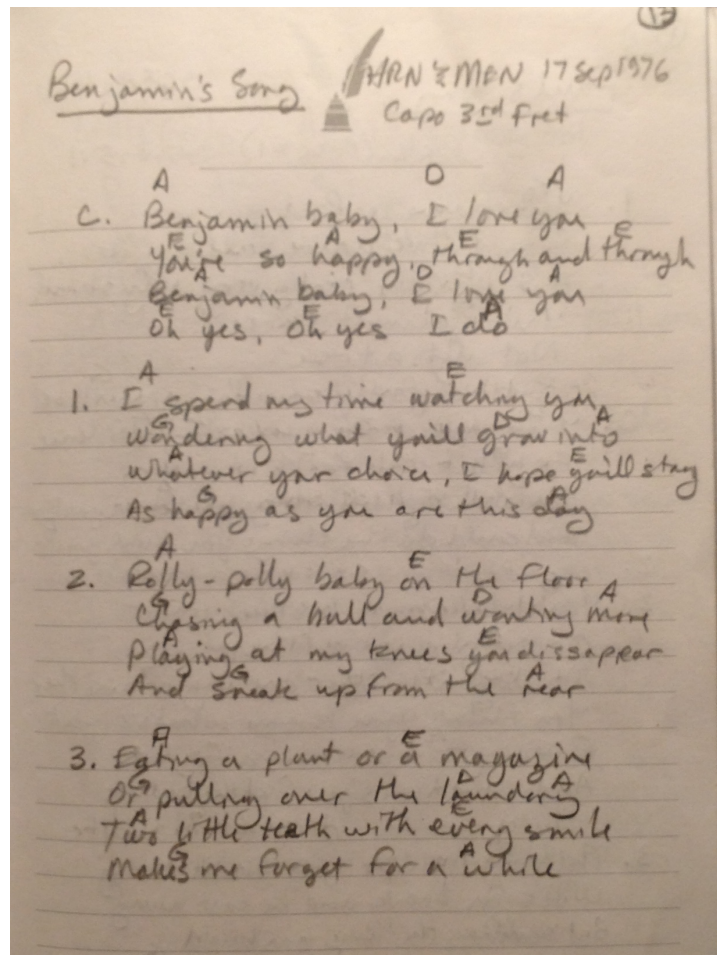 17
Benjamin's Song HRN & MEN 17 Sep 1976
Capo 3rd Fret
A D A
C. Benjamin baby, I love you
E A E E
You're so happy, through and through
A D A
Benjamin baby, I love you
E E A
Oh yes, Oh yes I do
A E
1. I spend my time watching you
G D A
wondering what you'll grow into
A E
whatever your choice, I hope you'll stay
G A
As happy as you are this day
A E
2. Rolly-polly baby on the floor
G D A
Chasing a ball and wanting more
A E
Playing at my knees you dissappear
G A
And sneak up from the rear
A E
3. Eating a plant or a magazine
G D A
Or pulling over the laundery
A E
Two little teeth with every smile
G A
Makes me forget for a while